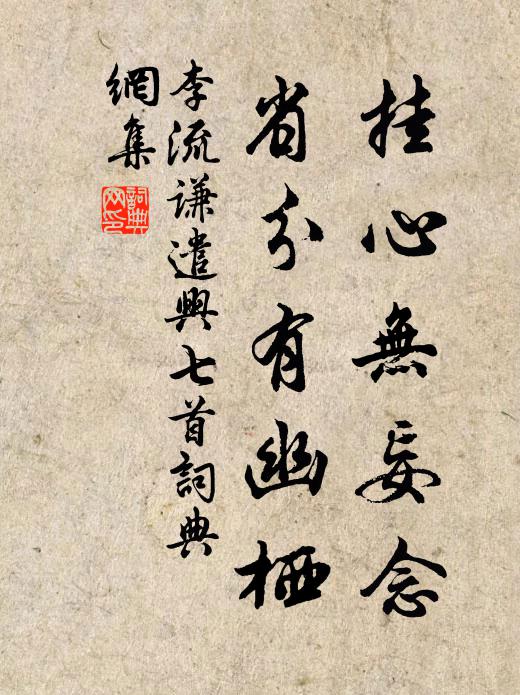 挂心無妄念
省分有幽栖
李流謙遣興七首詞典
網集
詞典網印